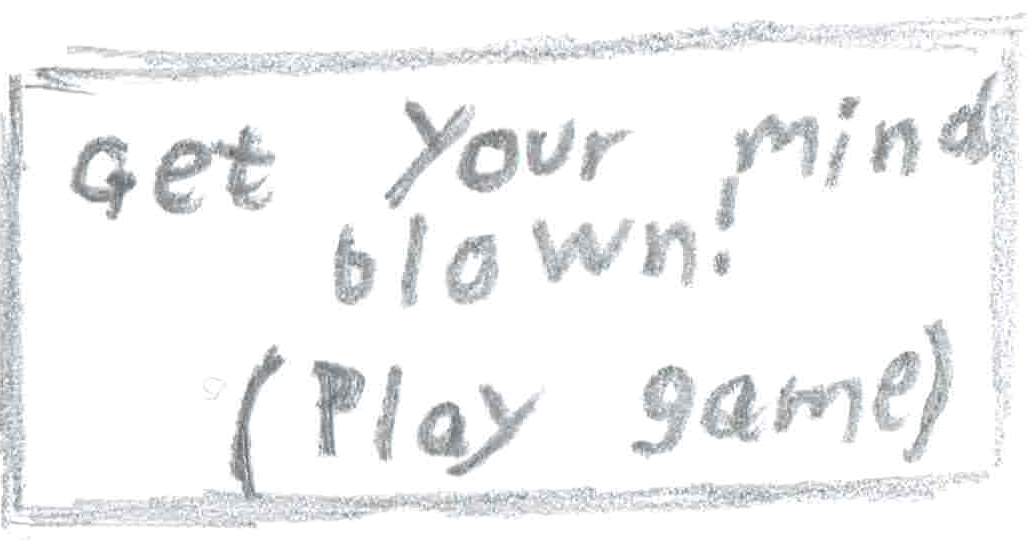 Get Your mind
blown!
(Play game)